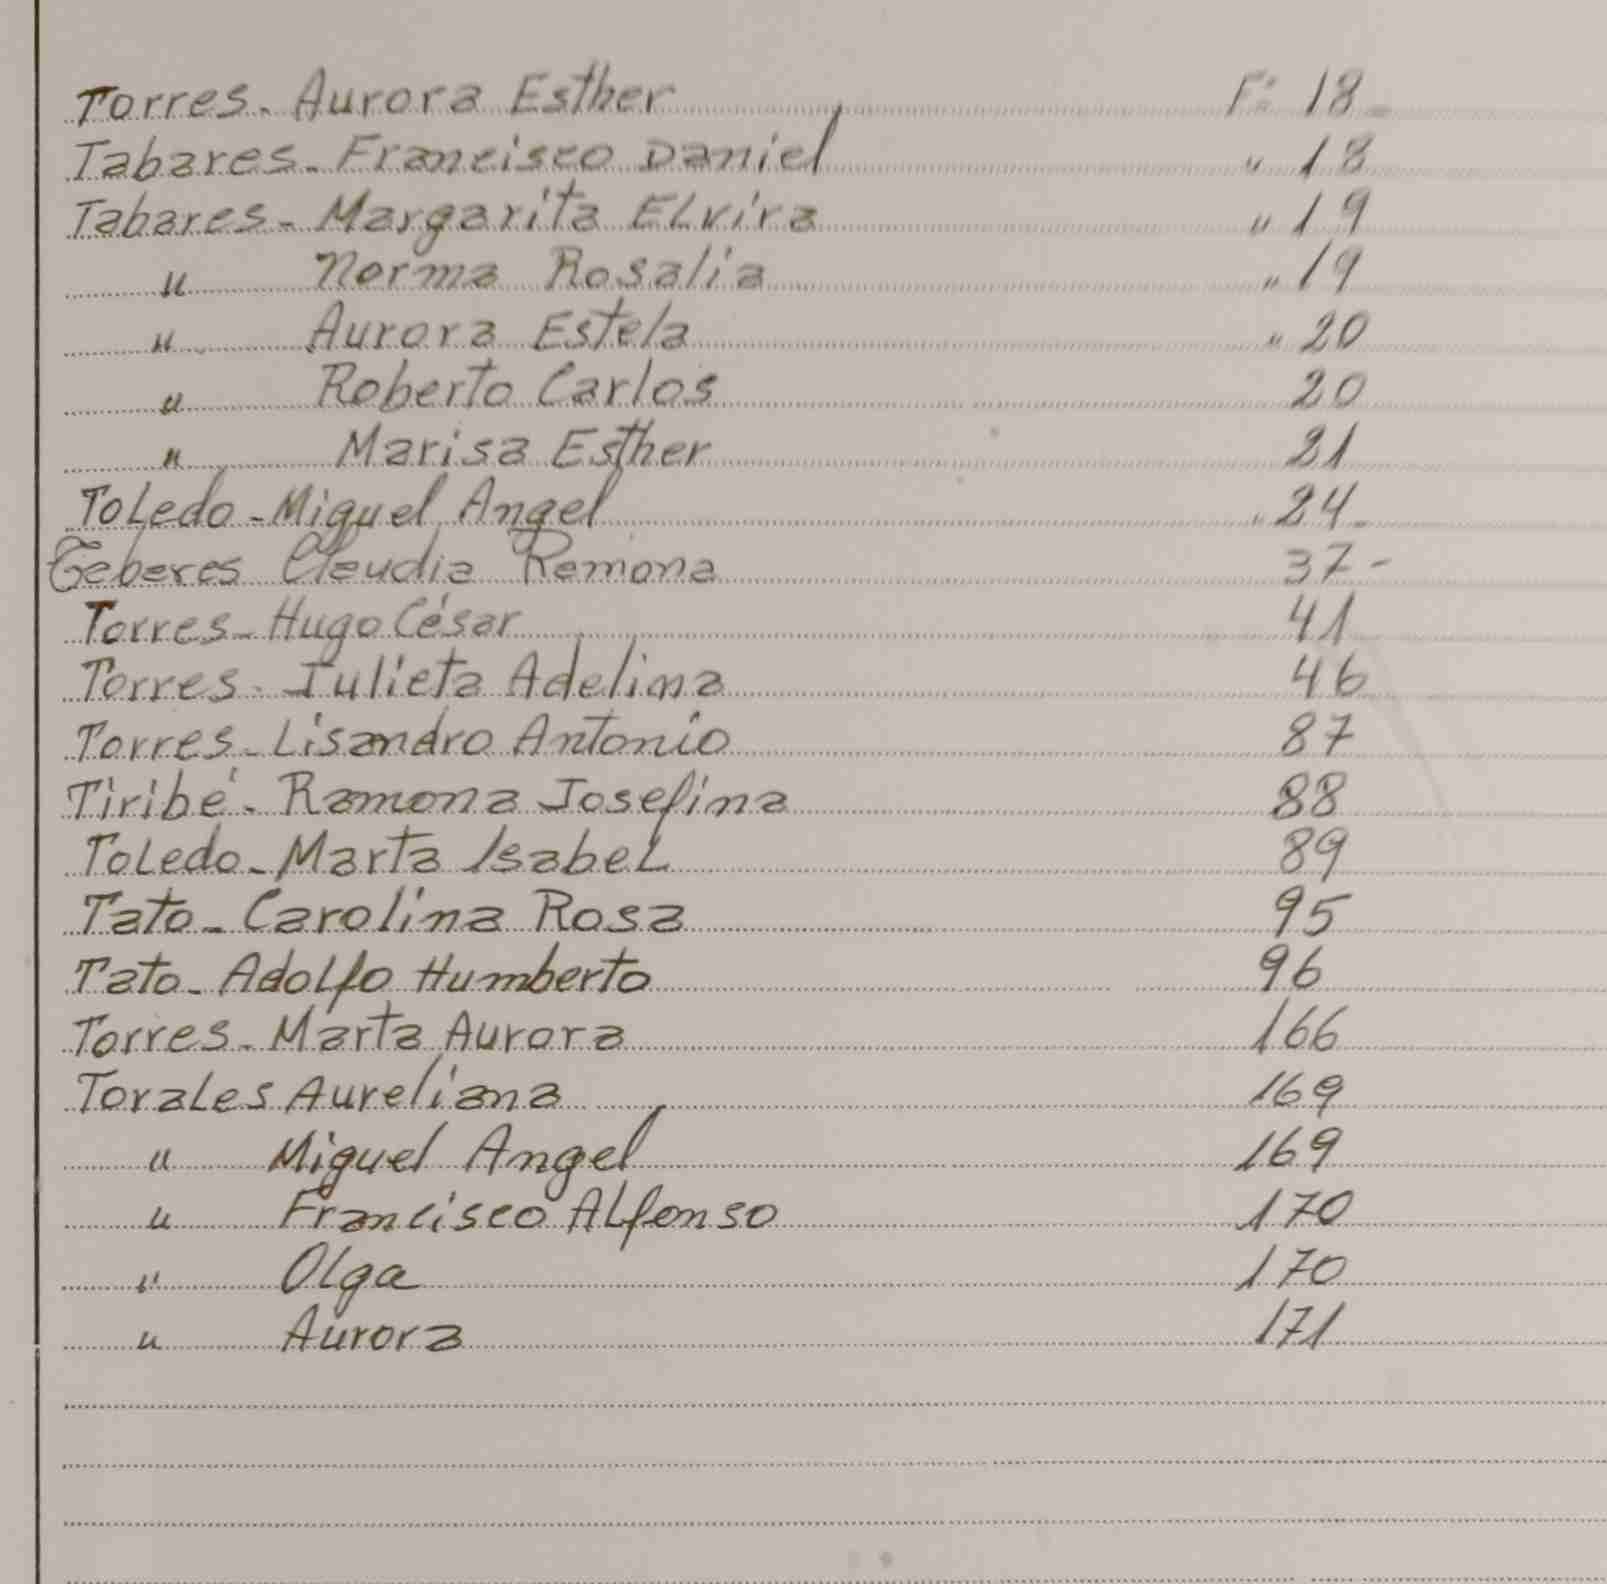 Torres - Aurora Esther F: 18 -
Tabares - Francisco Daniel " 18
Tabares - Margarita Elvira " 19
" Norma Rosalia " 19
" Aurora Estela " 20
" Roberto Carlos 20
" Marisa Esther 21
Toledo - Miguel Angel " 24 -
Teberes Claudia Remona 37 -
Torres - Hugo César 41
Torres - Julieta Adelina 46
Torres - Lisandro Antonio 87
Tiribé - Ramona Josefina 88
Toledo - Marta Isabel 89
Tato - Carolina Rosa 95
Tato - Adolfo Humberto 96
Torres - Marta Aurora 166
Torales Aureliana 169
" Miguel Angel 169
" Francisco Alfonso 170
" Olga 170
" Aurora 171